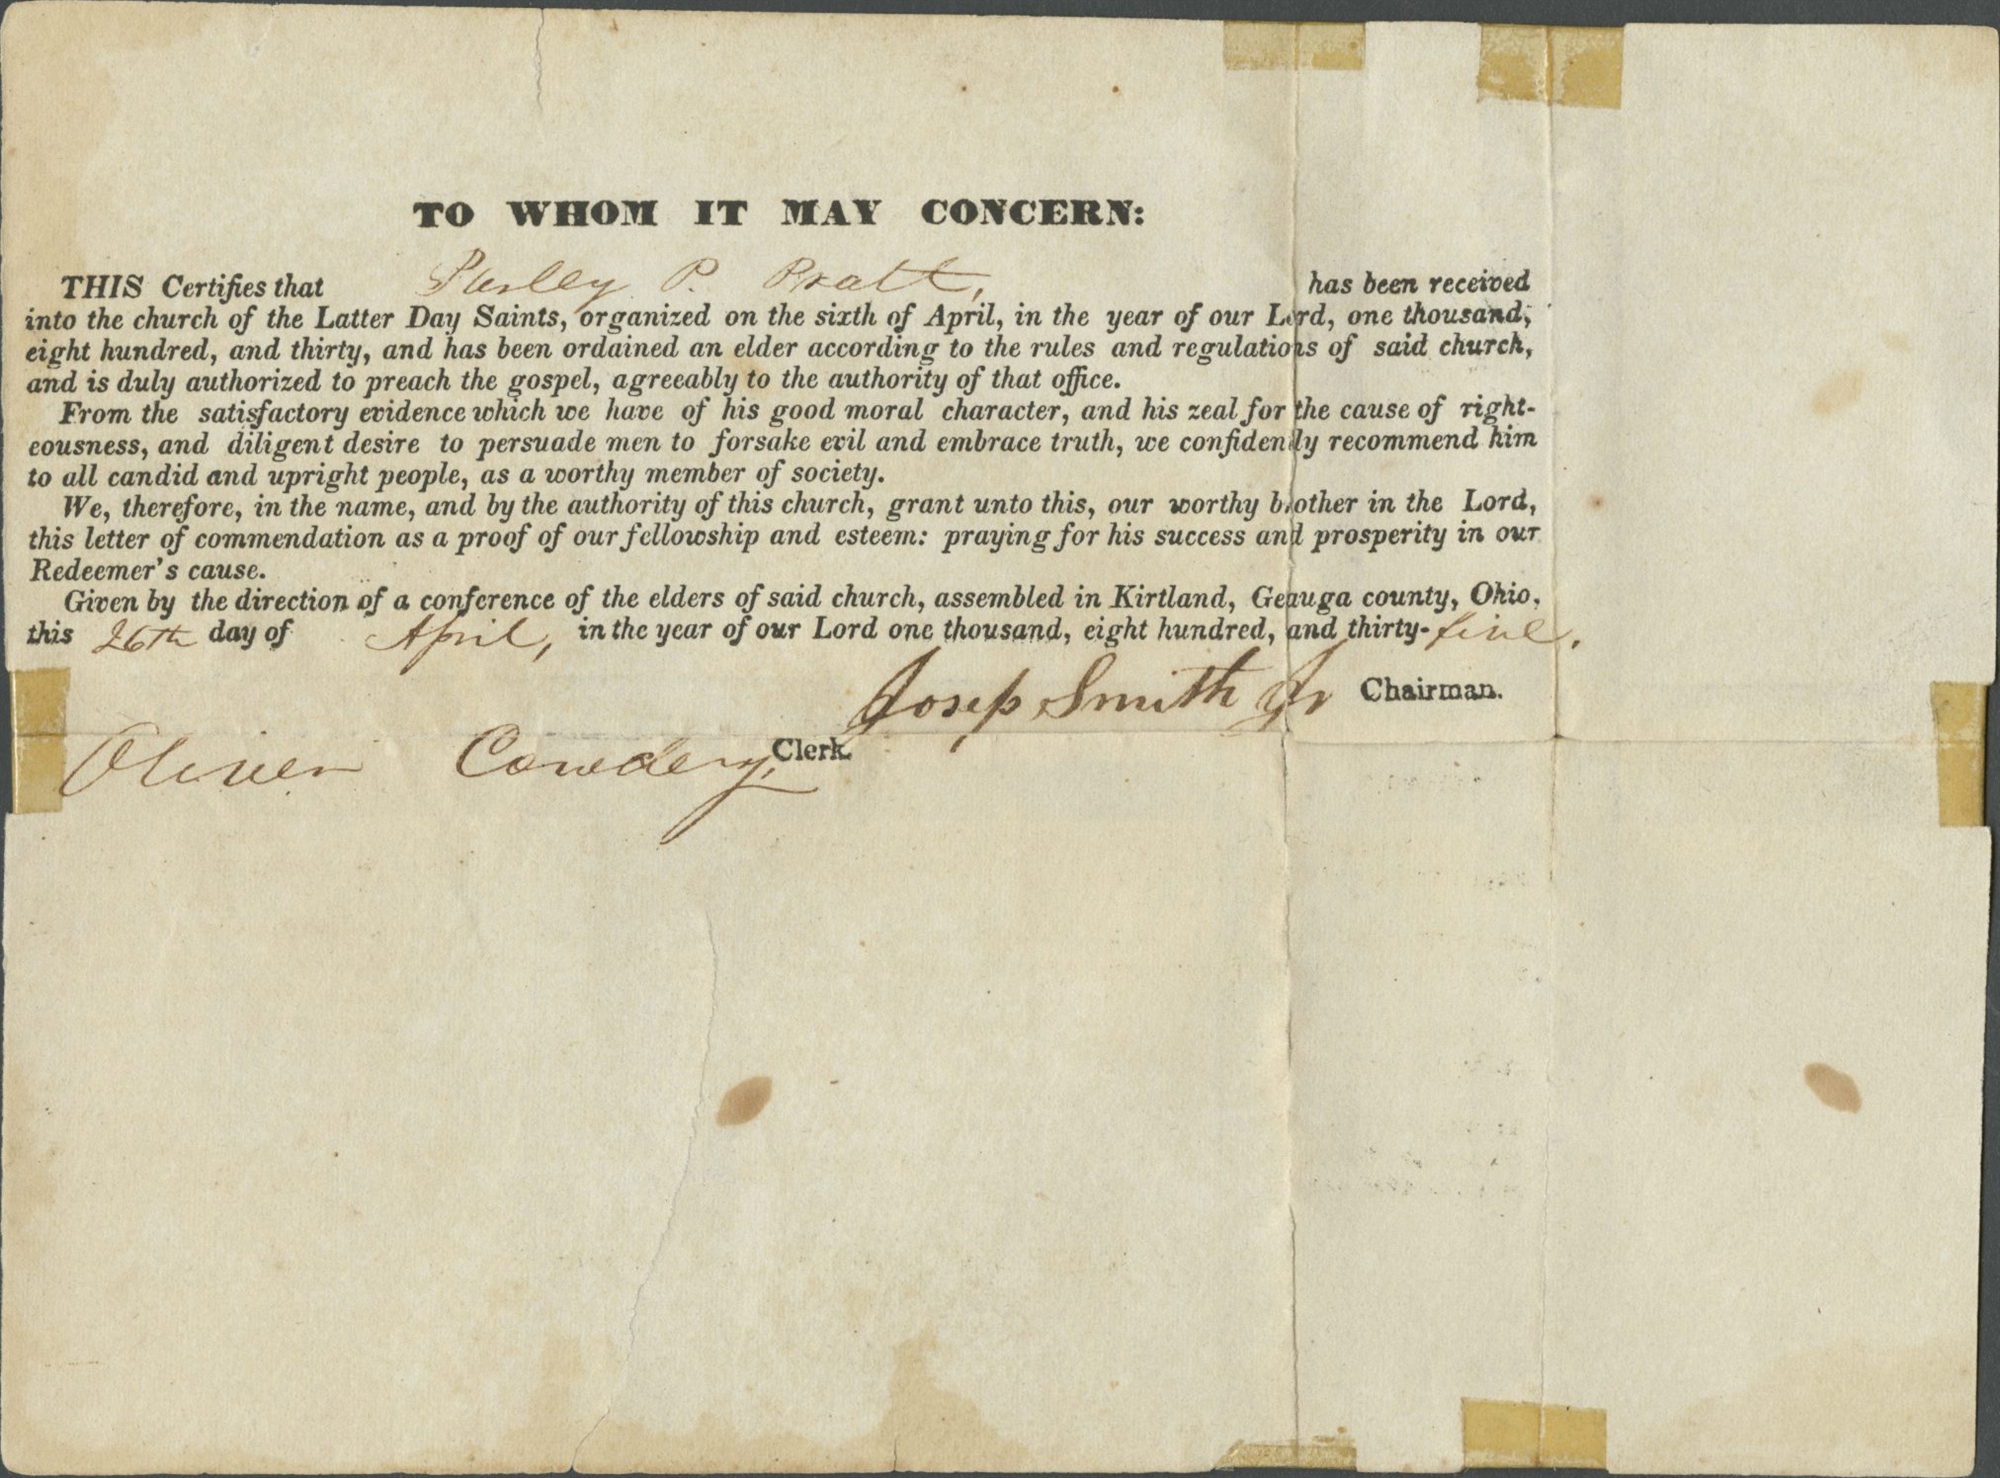 TO WHOM IT MAY CONCERN:
THIS Certifies that Parley P. Pratt, has been received
into the church of the Latter Day Saints, organized on the sixth of April, in the year of our Lord, one thousand,
eight hundred, and thirty, and has been ordained an elder according to the rules and regulations of said church,
and is duly authorized to preach the gospel, agreeably to the authority of that office.
From the satisfactory evidence which we have of his good moral character, and his zeal for the cause of right-
eousness, and diligent desire to persuade men to forsake evil and embrace truth, we confidently recommend him
to all candid and upright people, as a worthy member of society.
We, therefore, in the name, and by the authority of this church, grant unto this, our worthy brother in the Lord,
this letter of commendation as a proof of our fellowship and esteem: praying for his success and prosperity in our
Redeemer's cause.
Given by the direction of a conference of the elders of said church, assembled in Kirtland, Geauga county, Ohio,
this 26th day of April, in the year of our Lord one thousand, eight hundred, and thirty-five.
Joseph Smith Jr Chairman.
Oliver Cowdery, Clerk.